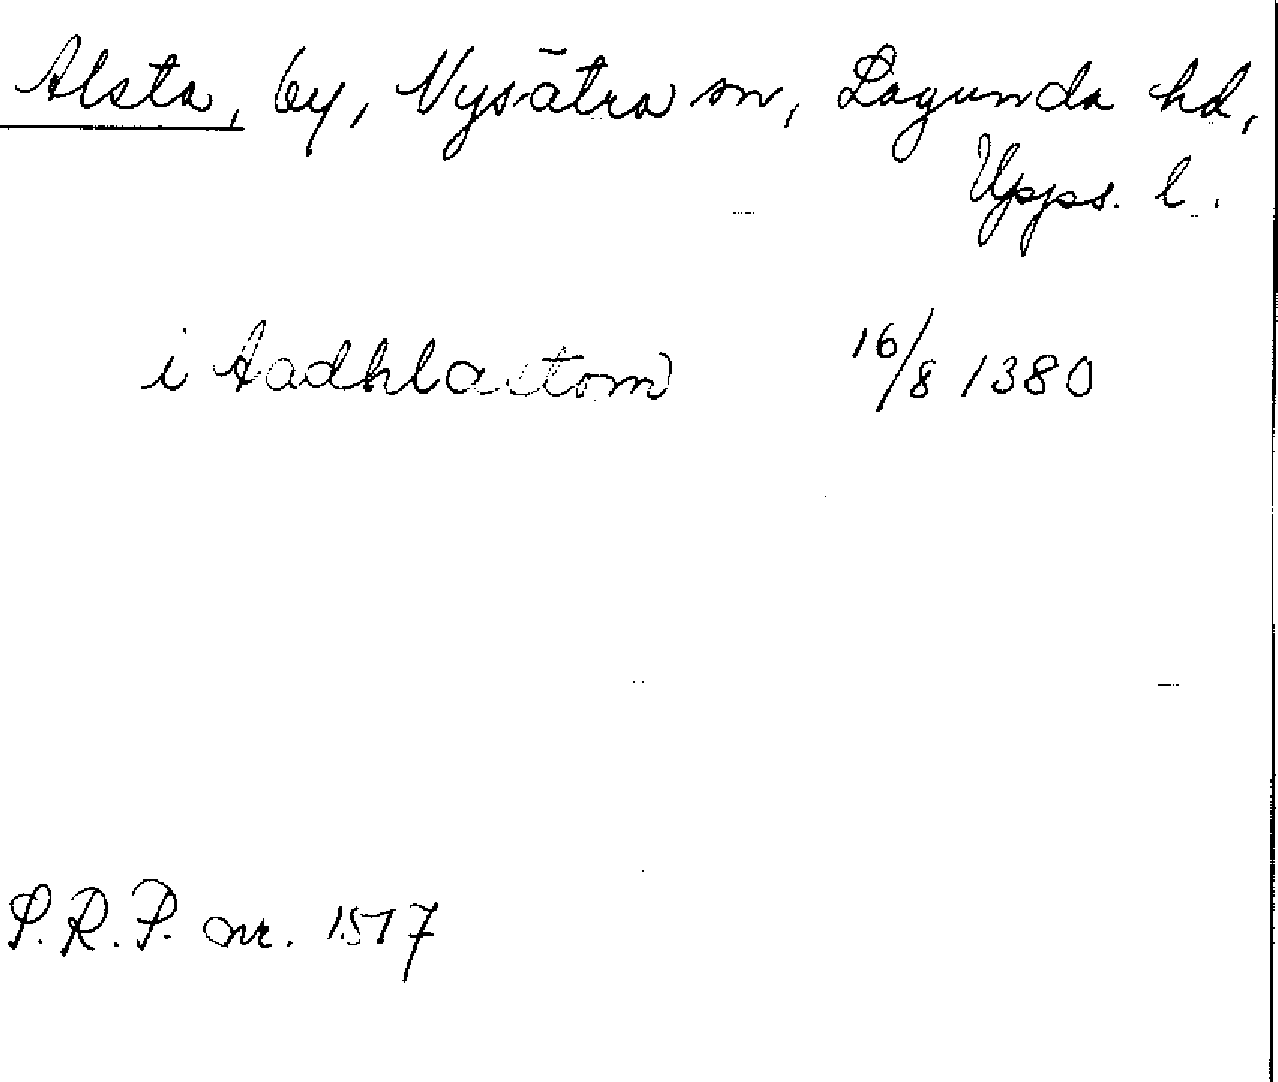 Alsta, by, Nysätra sn, Lagunda hd,
Upps. l.
i Aadhlastom 16/8 1380
S.R.P. nr. 1517